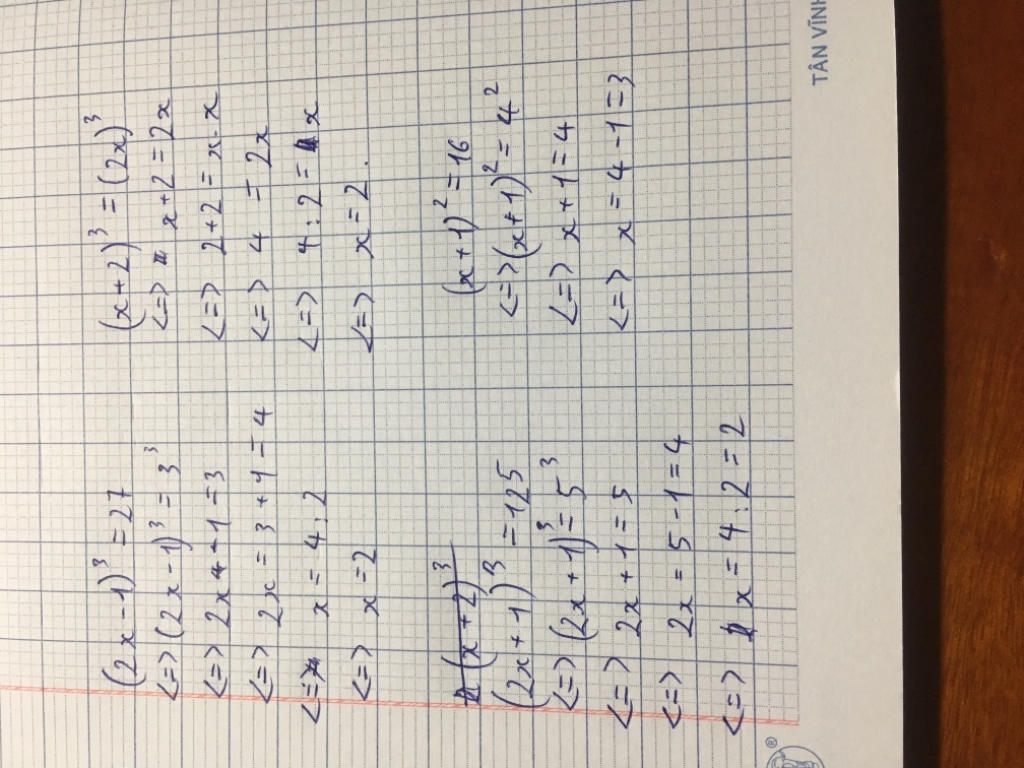 (2x-1)³ = 27
<=> (2x-1)³ = 3³
<=> 2x - 1 = 3
<=> 2x = 3 + 1 = 4
<=> x = 4 : 2
<=> x = 2
(x+2)³ = (2x)³
<=> x + 2 = 2x
<=> 2 + 2 = x . x
<=> 4 = 2x
<=> 4 : 2 = x
<=> x = 2 .
(x+2)³
(2x+1)³ = 125
<=> (2x+1)³ = 5³
<=> 2x + 1 = 5
<=> 2x = 5 - 1 = 4
<=> x = 4 : 2 = 2
(x+1)² = 16
<=> (x+1)² = 4²
<=> x + 1 = 4
<=> x = 4 - 1 = 3
®
TÂN VĨNH